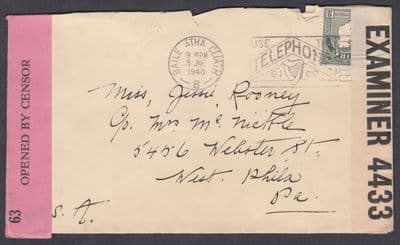 OPENED BY CENSOR
63
BAILE ATHA CLIATH
9 PM
5 JNE
1940
8
USE
TELEPHONE
EXAMINER 4433
Miss, Jessie Rooney
C/o Mrs Mc Nichole
5456 Webster St.
West. Phila
Pa.
S. A.